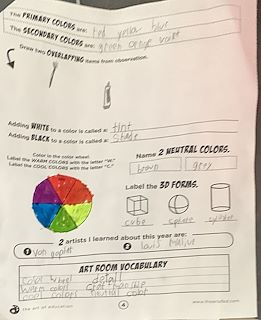 The PRIMARY COLORS are: red yellow blue
The SECONDARY COLORS are: green orange violet
Draw two OVERLAPPING items from observation.
Adding WHITE to a color is called a: tint
Adding BLACK to a color is called a: shade
Color in the color wheel.
Label the WARM COLORS with the letter "W."
Label the COOL COLORS with the letter "C."
Name 2 NEUTRAL COLORS.
brown grey
Label the 3D FORMS.
cube sphere
2 artists I learned about this year are:
1 van 2
ART ROOM VOCABULARY
color wheel detail
warm colors
cool colors color
the art of education 4 www.theartofed.com